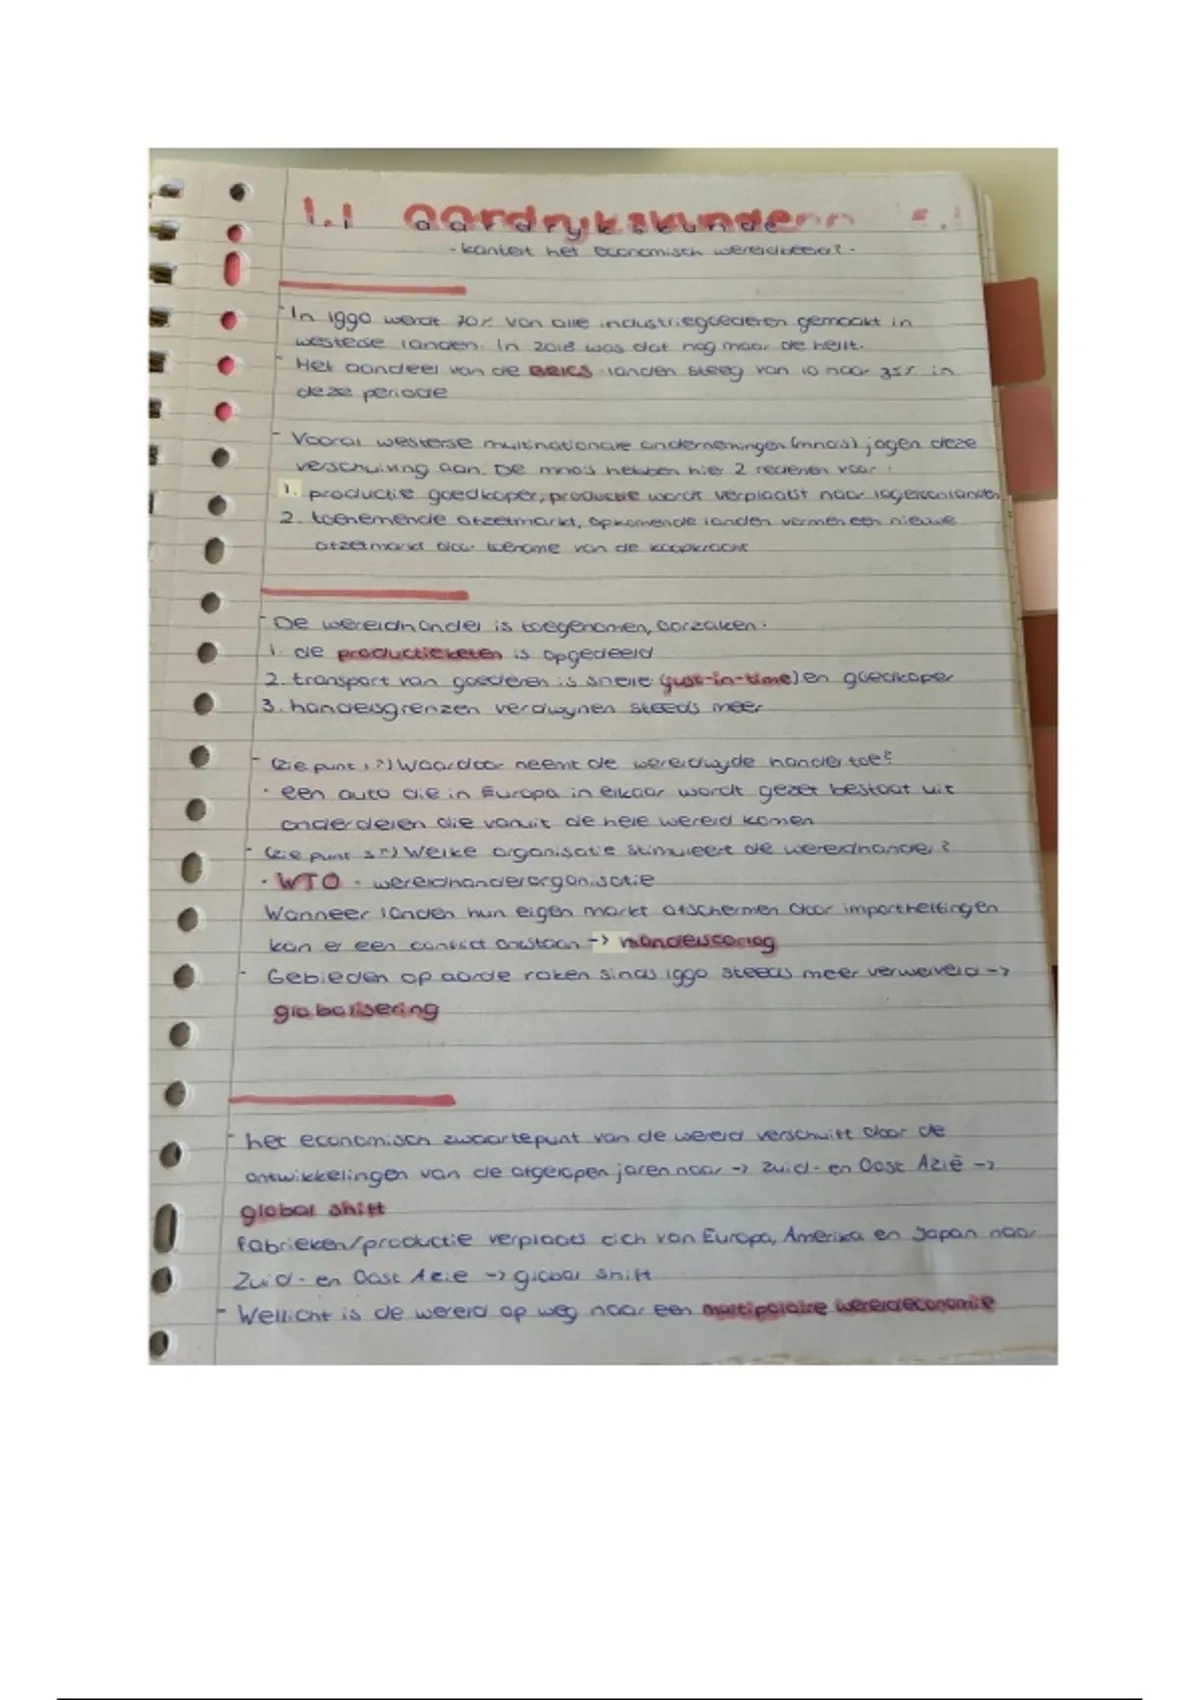 1.1 aardrijkskunde
- kantelt het economisch wereldbeeld? -
- In 1990 werdt 70% van alle industriegoederen gemaakt in
westerse landen. In 2018 was dat nog maar de helft.
- Het aandeel van de BRICS-landen steeg van 10 naar 35% in
deze periode
- Vooral westerse multinationale ondernemingen (mno's) jagen deze
verschuiving aan. De mno's hebben hier 2 redenen voor:
1. productie goedkoper, productie wordt verplaatst naar lagelonenlanden
2. toenemende afzetmarkt, opkomende landen vormen een nieuwe
afzetmarkt door toename van de koopkracht
- De wereldhandel is toegenomen, oorzaken:
1. de productieketen is opgedeeld
2. transport van goederen is snelle (just-in-time) en goedkoper
3. handelsgrenzen verdwijnen steeds meer
- (zie punt 1 ^) Waardoor neemt de wereldwijde handel toe?
· een auto die in Europa in elkaar wordt gezet bestaat uit
onderdelen die vanuit de hele wereld komen
- (zie punt 3 ^) Welke organisatie stimuleert de wereldhandel?
· WTO - wereldhandelorganisatie
Wanneer landen hun eigen markt afschermen door importheffingen
kan er een conflict ontstaan -> handelsoorlog
- Gebieden op aarde raken sinds 1990 steeds meer verweveld ->
globalisering
- het economisch zwaartepunt van de wereld verschuift door de
ontwikkelingen van de afgelopen jaren naar -> Zuid- en Oost Azië ->
global shift
Fabrieken/productie verplaats zich van Europa, Amerika en Japan naar
Zuid- en Oost Azie -> global shift
- Wellicht is de wereld op weg naar een multipolaire wereldeconomie